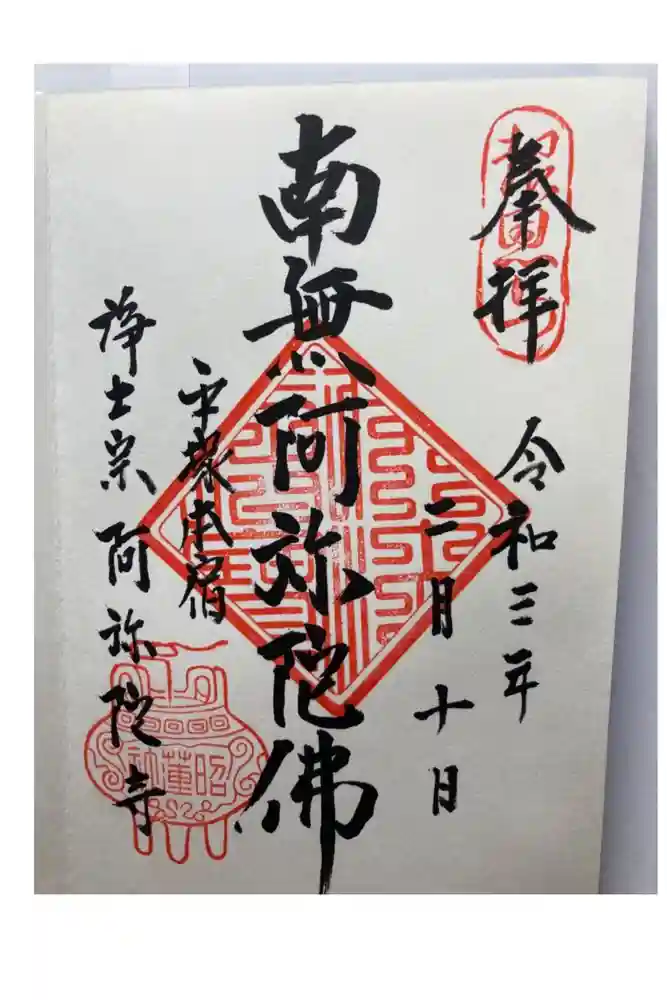 奉拝
令和三年
二月十日
南無阿弥陀佛
平塚本宿
浄土宗阿弥陀寺
昭蓮